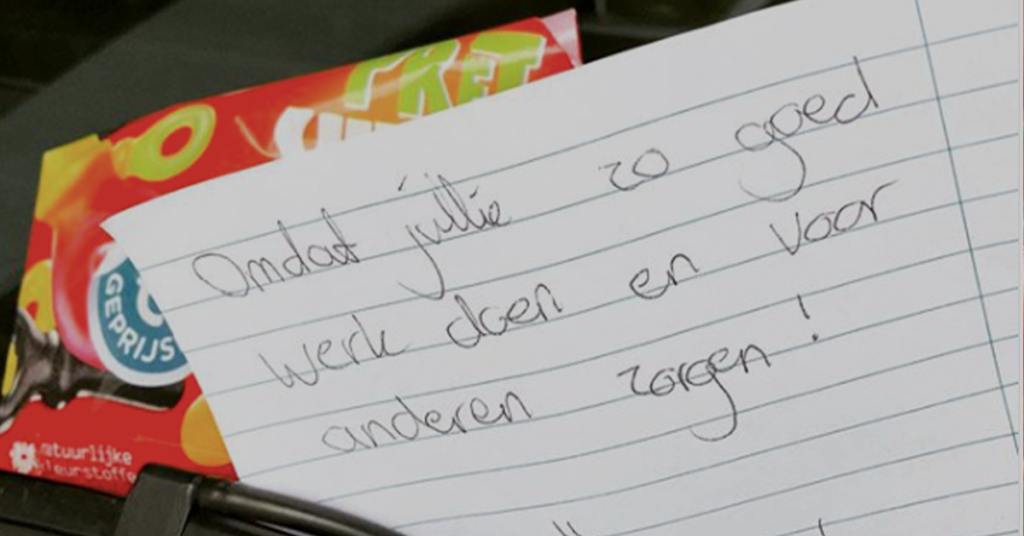 PRET
GEPRIJS
tuurlijke
leurstoffe
Omdat jullie zo goed
werk doen en voor
anderen zorgen!